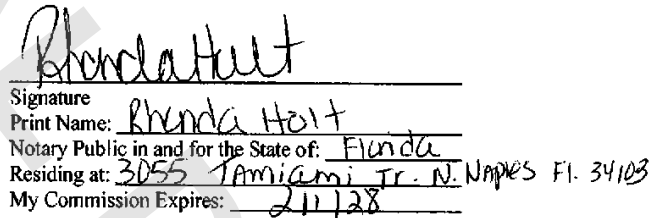 Rhonda Holt
Signature
Print Name: Rhonda Holt
Notary Public in and for the State of: Florida
Residing at: 3055 Tamiami Tr. N. Naples Fl. 34103
My Commission Expires: 2/1/28